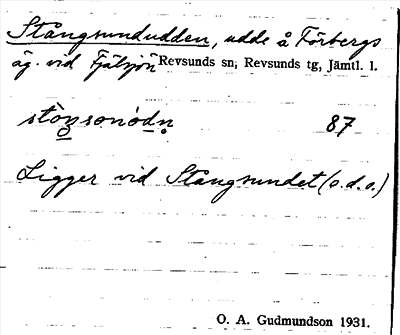 Stångsundudden, udde å Förbergs
äg. vid Fjälsjön Revsunds sn, Revsunds tg, Jämtl. l.
stònsonòdn 87
Ligger vid Stångsundet (s.d.o.)
O. A. Gudmundson 1931.